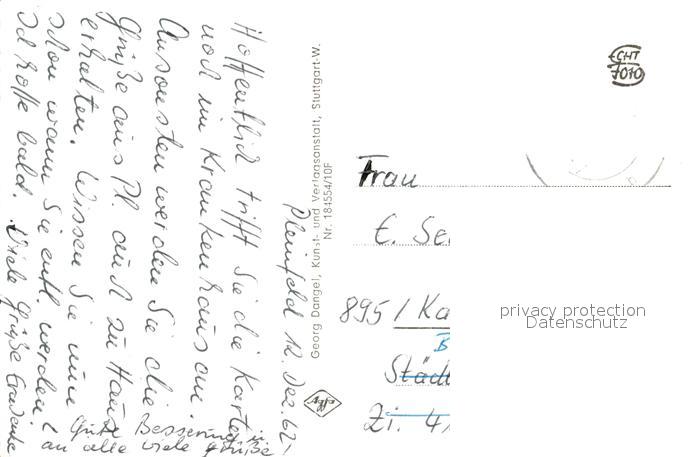 Pleinfeld 12. Dez. 62!
Hoffentlich trifft Sie die Karte
noch im Krankenhaus an.
Ansonsten werden Sie die
Grüße aus Pl. auch zu Haus
erhalten. Wissen Sie nun
schon wann Sie entl. werden?
Ich hoffe bald. Viele Grüße
Gute Besserung u.
an alle viele Grüße
Georg Dangel, Kunst- und Verlagsanstalt, Stuttgart-W.
Nr. 184554/10F
Agfa
ECHT
FOTO
Frau
E. Se
895 / Ka
B
Städt
Zi. 4
privacy protection
Datenschutz